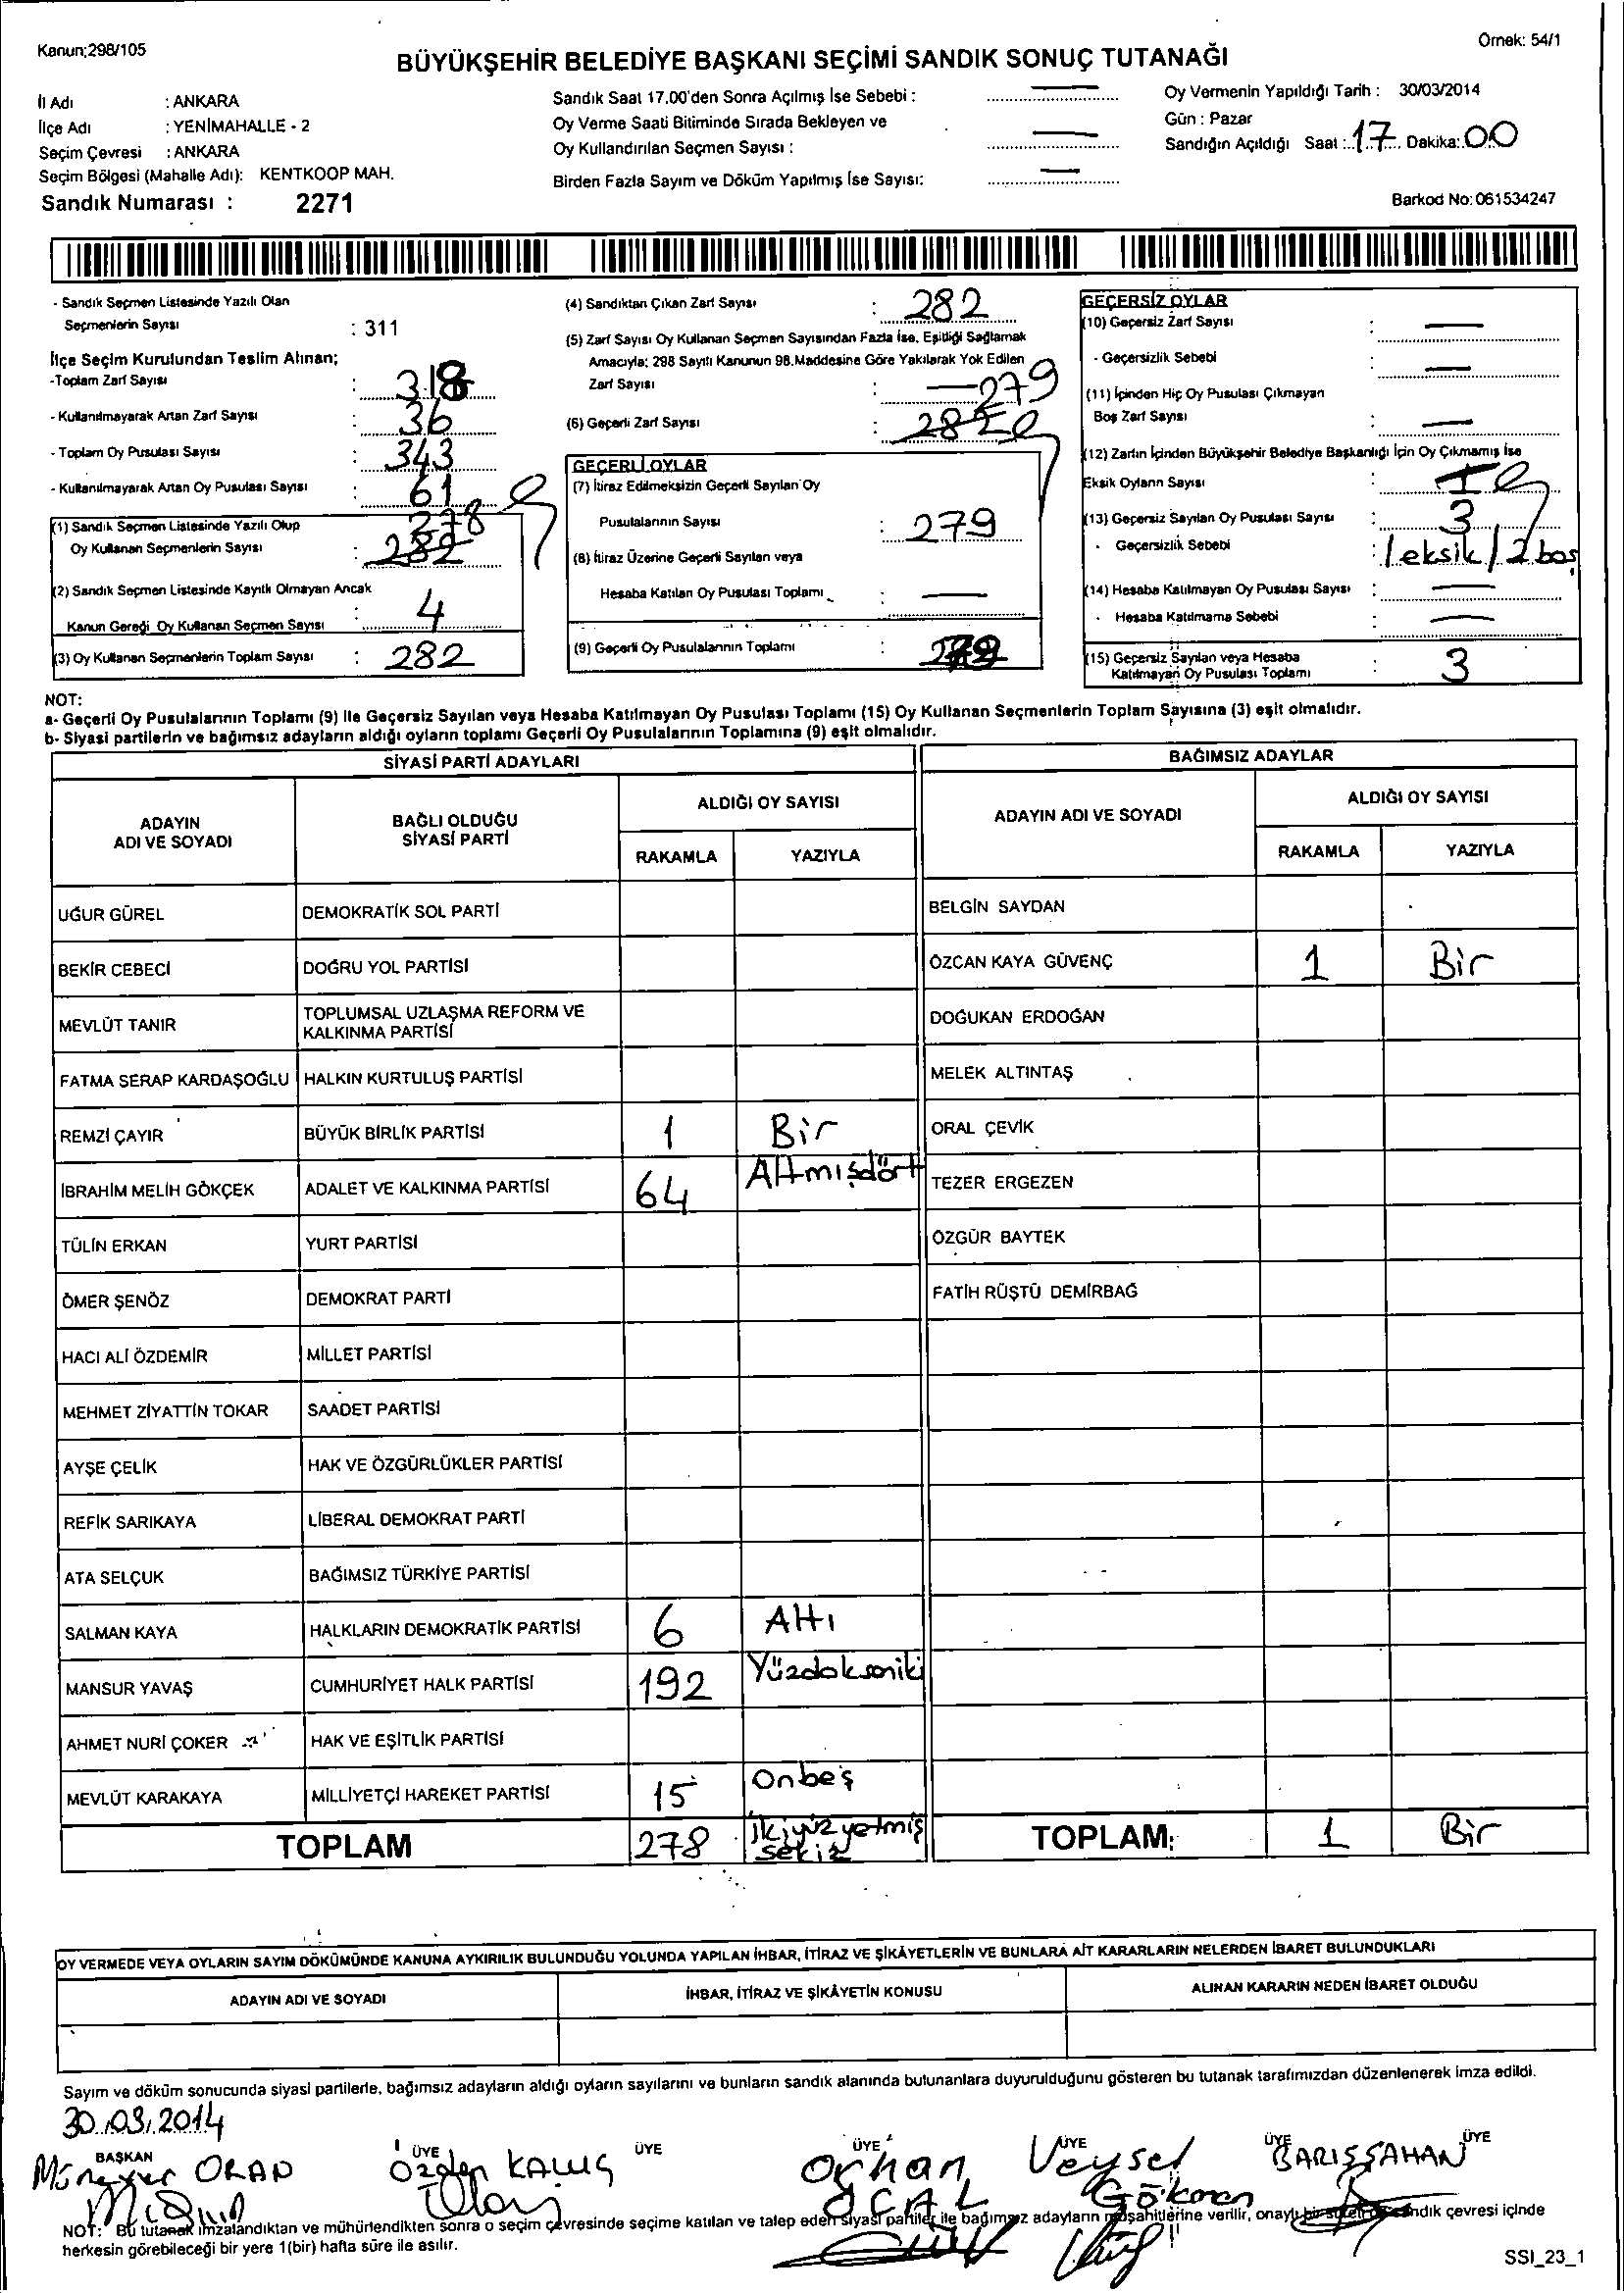 Kanun;298/105
Örnek: 54/1
BÜYÜKŞEHİR BELEDİYE BAŞKANI SEÇİMİ SANDIK SONUÇ TUTANAĞI
İl Adı : ANKARA
İlçe Adı : YENİMAHALLE - 2
Seçim Çevresi : ANKARA
Seçim Bölgesi (Mahalle Adı): KENTKOOP MAH.
Sandık Numarası : 2271
Sandık Saat 17.00'den Sonra Açılmış İse Sebebi : —
Oy Verme Saati Bitiminde Sırada Bekleyen ve
Oy Kullandırılan Seçmen Sayısı : —
Birden Fazla Sayım ve Döküm Yapılmış İse Sayısı: —
Oy Vermenin Yapıldığı Tarih : 30/03/2014
Gün : Pazar
Sandığın Açıldığı Saat : 17 Dakika: 00
Barkod No: 061534247
- Sandık Seçmen Listesinde Yazılı Olan
Seçmenlerin Sayısı : 311
İlçe Seçim Kurulundan Teslim Alınan;
-Toplam Zarf Sayısı : 318
- Kullanılmayarak Artan Zarf Sayısı : 36
- Toplam Oy Pusulası Sayısı : 343
- Kullanılmayarak Artan Oy Pusulası Sayısı : 61
(1) Sandık Seçmen Listesinde Yazılı Olup 278
Oy Kullanan Seçmenlerin Sayısı : 282
(2) Sandık Seçmen Listesinde Kayıtlı Olmayan Ancak
Kanun Gereği Oy Kullanan Seçmen Sayısı : 4
(3) Oy Kullanan Seçmenlerin Toplam Sayısı : 282
(4) Sandıktan Çıkan Zarf Sayısı : 282
(5) Zarf Sayısı Oy Kullanan Seçmen Sayısından Fazla İse, Eşitliği Sağlamak
Amacıyla; 298 Sayılı Kanunun 98.Maddesine Göre Yakılarak Yok Edilen
Zarf Sayısı : —
279
(6) Geçerli Zarf Sayısı : 282
GEÇERLİ OYLAR
(7) İtiraz Edilmeksizin Geçerli Sayılan Oy
Pusulalarının Sayısı : 279
(8) İtiraz Üzerine Geçerli Sayılan veya
Hesaba Katılan Oy Pusulası Toplamı : —
(9) Geçerli Oy Pusulalarının Toplamı : 279
GEÇERSİZ OYLAR
(10) Geçersiz Zarf Sayısı : —
- Geçersizlik Sebebi : —
(11) İçinden Hiç Oy Pusulası Çıkmayan
Boş Zarf Sayısı : —
(12) Zarfın İçinden Büyükşehir Belediye Başkanlığı İçin Oy Çıkmamış İse
Eksik Oyların Sayısı : 1
(13) Geçersiz Sayılan Oy Pusulası Sayısı : 3
- Geçersizlik Sebebi : 1 eksik / 2 boş
(14) Hesaba Katılmayan Oy Pusulası Sayısı : —
- Hesaba Katılmama Sebebi : —
(15) Geçersiz Sayılan veya Hesaba
Katılmayan Oy Pusulası Toplamı : 3
NOT:
a- Geçerli Oy Pusulalarının Toplamı (9) İle Geçersiz Sayılan veya Hesaba Katılmayan Oy Pusulası Toplamı (15) Oy Kullanan Seçmenlerin Toplam Sayısına (3) eşit olmalıdır.
b- Siyasi partilerin ve bağımsız adayların aldığı oyların toplamı Geçerli Oy Pusulalarının Toplamına (9) eşit olmalıdır.
SİYASİ PARTİ ADAYLARI
ADAYIN ADI VE SOYADI
BAĞLI OLDUĞU SİYASİ PARTİ
ALDIĞI OY SAYISI
RAKAMLA YAZIYLA
UĞUR GÜREL DEMOKRATİK SOL PARTİ
BEKİR CEBECİ DOĞRU YOL PARTİSİ
MEVLÜT TANIR TOPLUMSAL UZLAŞMA REFORM VE KALKINMA PARTİSİ
FATMA SERAP KARDAŞOĞLU HALKIN KURTULUŞ PARTİSİ
REMZİ ÇAYIR BÜYÜK BİRLİK PARTİSİ 1 Bir
İBRAHİM MELİH GÖKÇEK ADALET VE KALKINMA PARTİSİ 64 Altmışdört
TÜLİN ERKAN YURT PARTİSİ
ÖMER ŞENÖZ DEMOKRAT PARTİ
HACI ALİ ÖZDEMİR MİLLET PARTİSİ
MEHMET ZİYATTİN TOKAR SAADET PARTİSİ
AYŞE ÇELİK HAK VE ÖZGÜRLÜKLER PARTİSİ
REFİK SARIKAYA LİBERAL DEMOKRAT PARTİ
ATA SELÇUK BAĞIMSIZ TÜRKİYE PARTİSİ
SALMAN KAYA HALKLARIN DEMOKRATİK PARTİSİ 6 Altı
MANSUR YAVAŞ CUMHURİYET HALK PARTİSİ 192 Yüzdoksaniki
AHMET NURİ ÇOKER HAK VE EŞİTLİK PARTİSİ
MEVLÜT KARAKAYA MİLLİYETÇİ HAREKET PARTİSİ 15 Onbeş
TOPLAM 278 ikiyüzyetmiş sekiz
BAĞIMSIZ ADAYLAR
ADAYIN ADI VE SOYADI
ALDIĞI OY SAYISI
RAKAMLA YAZIYLA
BELGİN SAYDAN
ÖZCAN KAYA GÜVENÇ 1 Bir
DOĞUKAN ERDOĞAN
MELEK ALTINTAŞ
ORAL ÇEVİK
TEZER ERGEZEN
ÖZGÜR BAYTEK
FATİH RÜŞTÜ DEMİRBAĞ
TOPLAM: 1 Bir
OY VERMEDE VEYA OYLARIN SAYIM DÖKÜMÜNDE KANUNA AYKIRILIK BULUNDUĞU YOLUNDA YAPILAN İHBAR, İTİRAZ VE ŞİKÂYETLERİN VE BUNLARA AİT KARARLARIN NELERDEN İBARET BULUNDUKLARI
ADAYIN ADI VE SOYADI İHBAR, İTİRAZ VE ŞİKÂYETİN KONUSU ALINAN KARARIN NEDEN İBARET OLDUĞU
Sayım ve döküm sonucunda siyasi partilerle, bağımsız adayların aldığı oyların sayılarını ve bunların sandık alanında bulunanlara duyurulduğunu gösteren bu tutanak tarafımızdan düzenlenerek imza edildi.
30.03.2014
BAŞKAN ÜYE ÜYE ÜYE ÜYE ÜYE ÜYE
Özden KALUÇ Orhan ÖCAL Veysel Gökmen BARIŞ ŞAHAN
NOT: Bu tutanak imzalandıktan ve mühürlendikten sonra o seçim çevresinde seçime katılan ve talep eden siyasi partiler ile bağımsız adayların müşahitlerine verilir, onaylı bir sureti de sandık çevresi içinde
herkesin görebileceği bir yere 1(bir) hafta süre ile asılır.
SSI_23_1